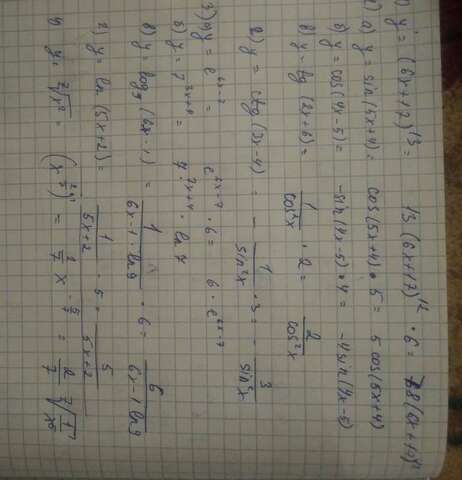 1) y = (6x+17)^13 = 13(6x+17)^12 · 6 = 78(6x+17)^12
2) a) y = sin(5x+4) = cos(5x+4) · 5 = 5 cos(5x+4)
б) y = cos(4x-5) = -sin(4x-5) · 4 = -4 sin(4x-5)
в) y = tg(2x+6) = 1/cos²x · 2 = 2/cos²x
г) y = ctg(3x-4) = - 1/sin²x · 3 = - 3/sin²x
3) a) y = e^6x-7 = e^6x-7 · 6 = 6 · e^6x-7
б) y = 7^3x+4 = 7^3x+4 · ln 7
в) y = log9(6x-1) = 1/6x-1 · ln9 · 6 = 6/6x-1 ln9
г) y = ln(5x+2) = 1/5x+2 · 5 = 5/5x+2
4) y = ⁷√x² = (x^2/7) = 2/7 x^-5/7 =